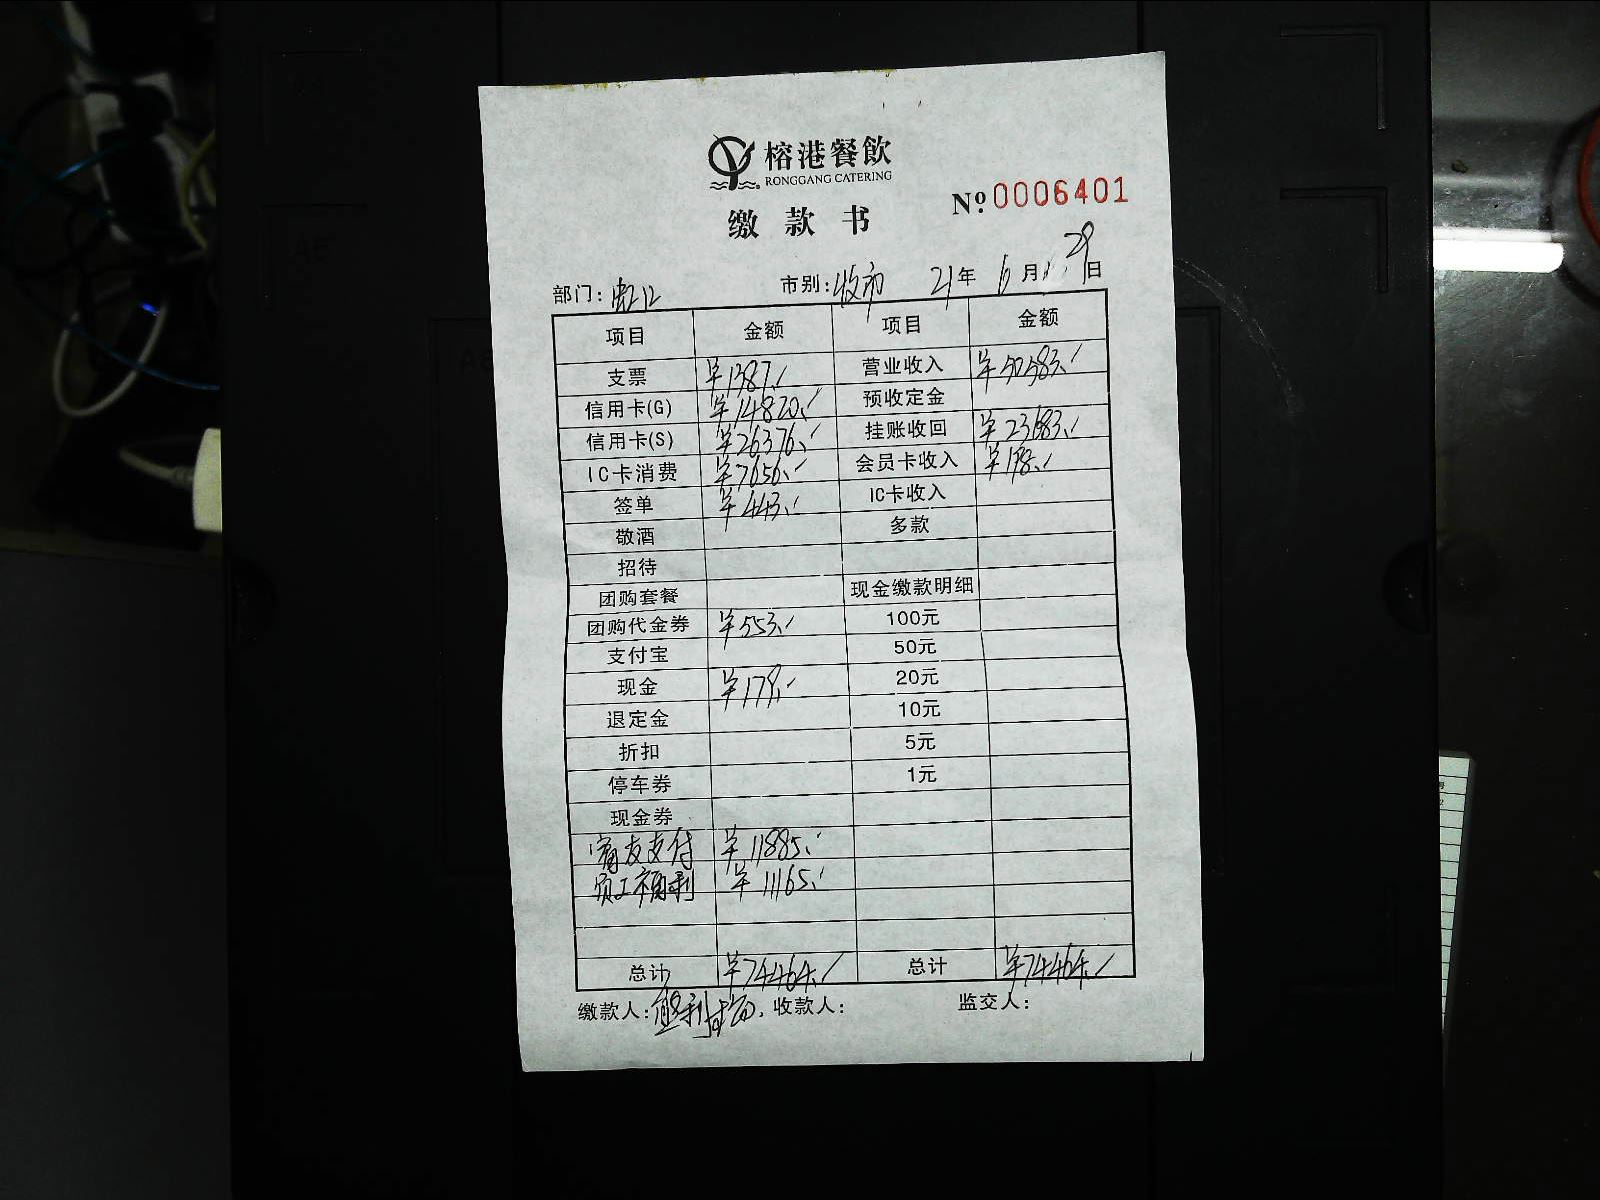 榕港餐飲
RONGGANG CATERING
№:0006401
缴款书
部门:虹口 市别:收市 21年6月29日
项目 金额 项目 金额
支票 ¥1387.- 营业收入 ¥50583.-
信用卡(G) ¥14820.- 预收定金
信用卡(S) ¥26376.- 挂账收回 ¥23683.-
IC卡消费 ¥7656.- 会员卡收入 ¥198.-
签单 ¥443.- IC卡收入
敬酒 多款
招待
团购套餐 现金缴款明细
团购代金券 ¥553.- 100元
支付宝 50元
现金 ¥179.- 20元
退定金 10元
折扣 5元
停车券 1元
现金券
友支付 ¥11885.-
员工福利 ¥11165.-
总计 ¥74464.- 总计 ¥74464.-
缴款人: 收款人: 监交人: